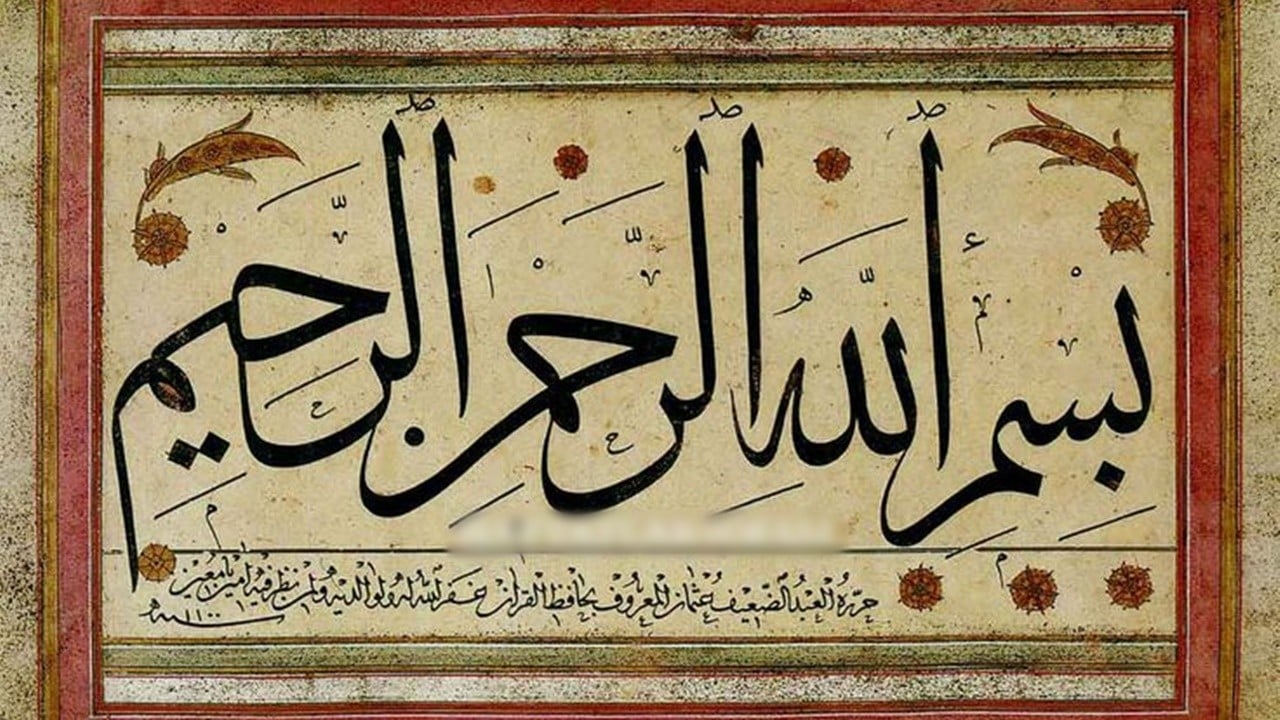 بسم الله الرحمن الرحيم
حرره العبد الضعيف عثمان المعروف بحافظ القرآن غفر الله له ولوالديه ولمن نظر فيه آمين يا معين
سنة ١١٠٠